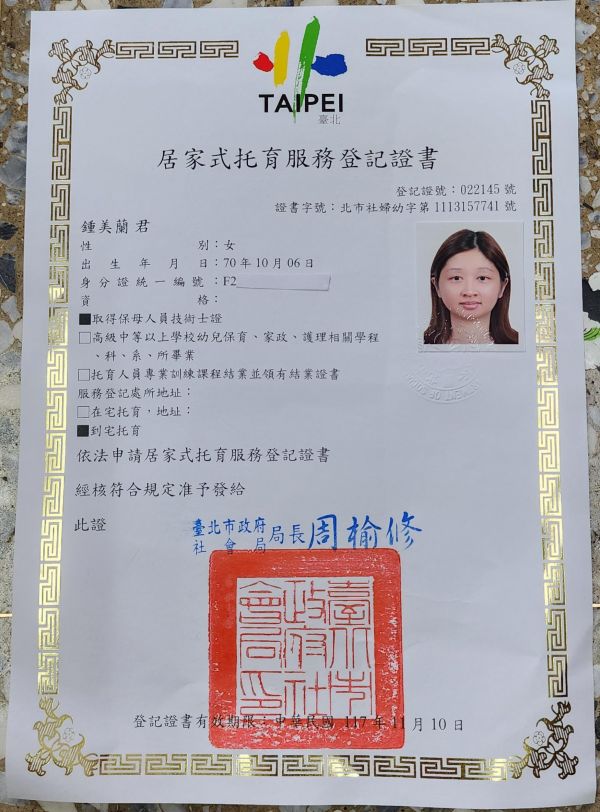 TAIPEI
臺北
居家式托育服務登記證書
登記證號：022145號
證書字號：北市社婦幼字第1113157741號
鍾美蘭君
性別：女
出生年月日：70年10月06日
身分證統一編號：F2
資格：
■取得保母人員技術士證
□高級中等以上學校幼兒保育、家政、護理相關學程
、科、系、所畢業
□托育人員專業訓練課程結業並領有結業證書
服務登記處所地址：
□在宅托育，地址：
■到宅托育
依法申請居家式托育服務登記證書
經核符合規定准予發給
此證
臺北市政府
社會局
局長周榆修
臺北市政府社會局印
登記證書有效期限：中華民國117年11月10日